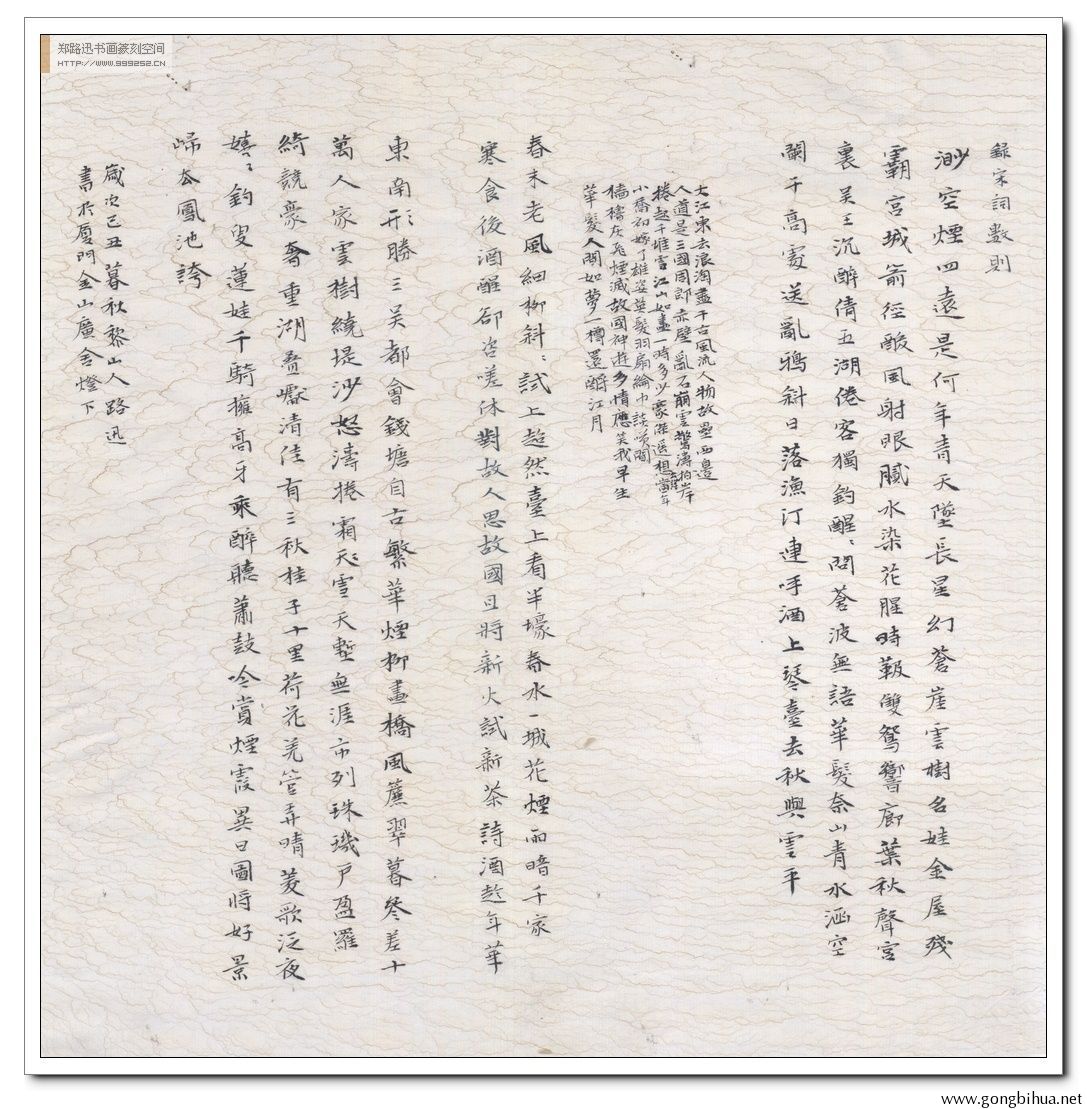 郑路迅书画篆刻空间
HTTP://WWW.999252.CN
錄宋詞數則
渺空煙四遠是何年青天墜長星幻蒼崖雲樹名娃金屋殘
霸宮城箭徑酸風射眼膩水染花腥時靸雙鴛響廊葉秋聲宮
裏吳王沉醉倩五湖倦客獨釣醒〻問蒼波無語華髮奈山青水涵空
闌干高處送亂鴉斜日落漁汀連呼酒上琴臺去秋與雲平
大江東去浪淘盡千古風流人物故壘西邊
人道是三國周郎赤壁亂石崩雲驚濤拍岸
捲起千堆雪江山如畫一時多少豪傑遙想公瑾當年
小喬初嫁了雄姿英發羽扇綸巾談笑間
檣櫓灰飛煙滅故國神遊多情應笑我早生
華髮人間如夢一樽還酹江月
春未老風細柳斜〻試上超然臺上看半壕春水一城花煙雨暗千家
寒食後酒醒卻咨嗟休對故人思故國且將新火試新茶詩酒趁年華
東南形勝三吳都會錢塘自古繁華煙柳畫橋風簾翠暮參差十
萬人家雲樹繞堤沙怒濤捲霜天雪天塹無涯市列珠璣戶盈羅
綺競豪奢重湖疊巘清佳有三秋桂子十里荷花羌管弄晴菱歌泛夜
嬉〻釣叟蓮娃千騎擁高牙乘醉聽蕭鼓吟賞煙霞異日圖將好景
歸去鳳池誇
歲次己丑暮秋黎山人路迅
書於廈門金山廣舍燈下
www.gongbihua.net